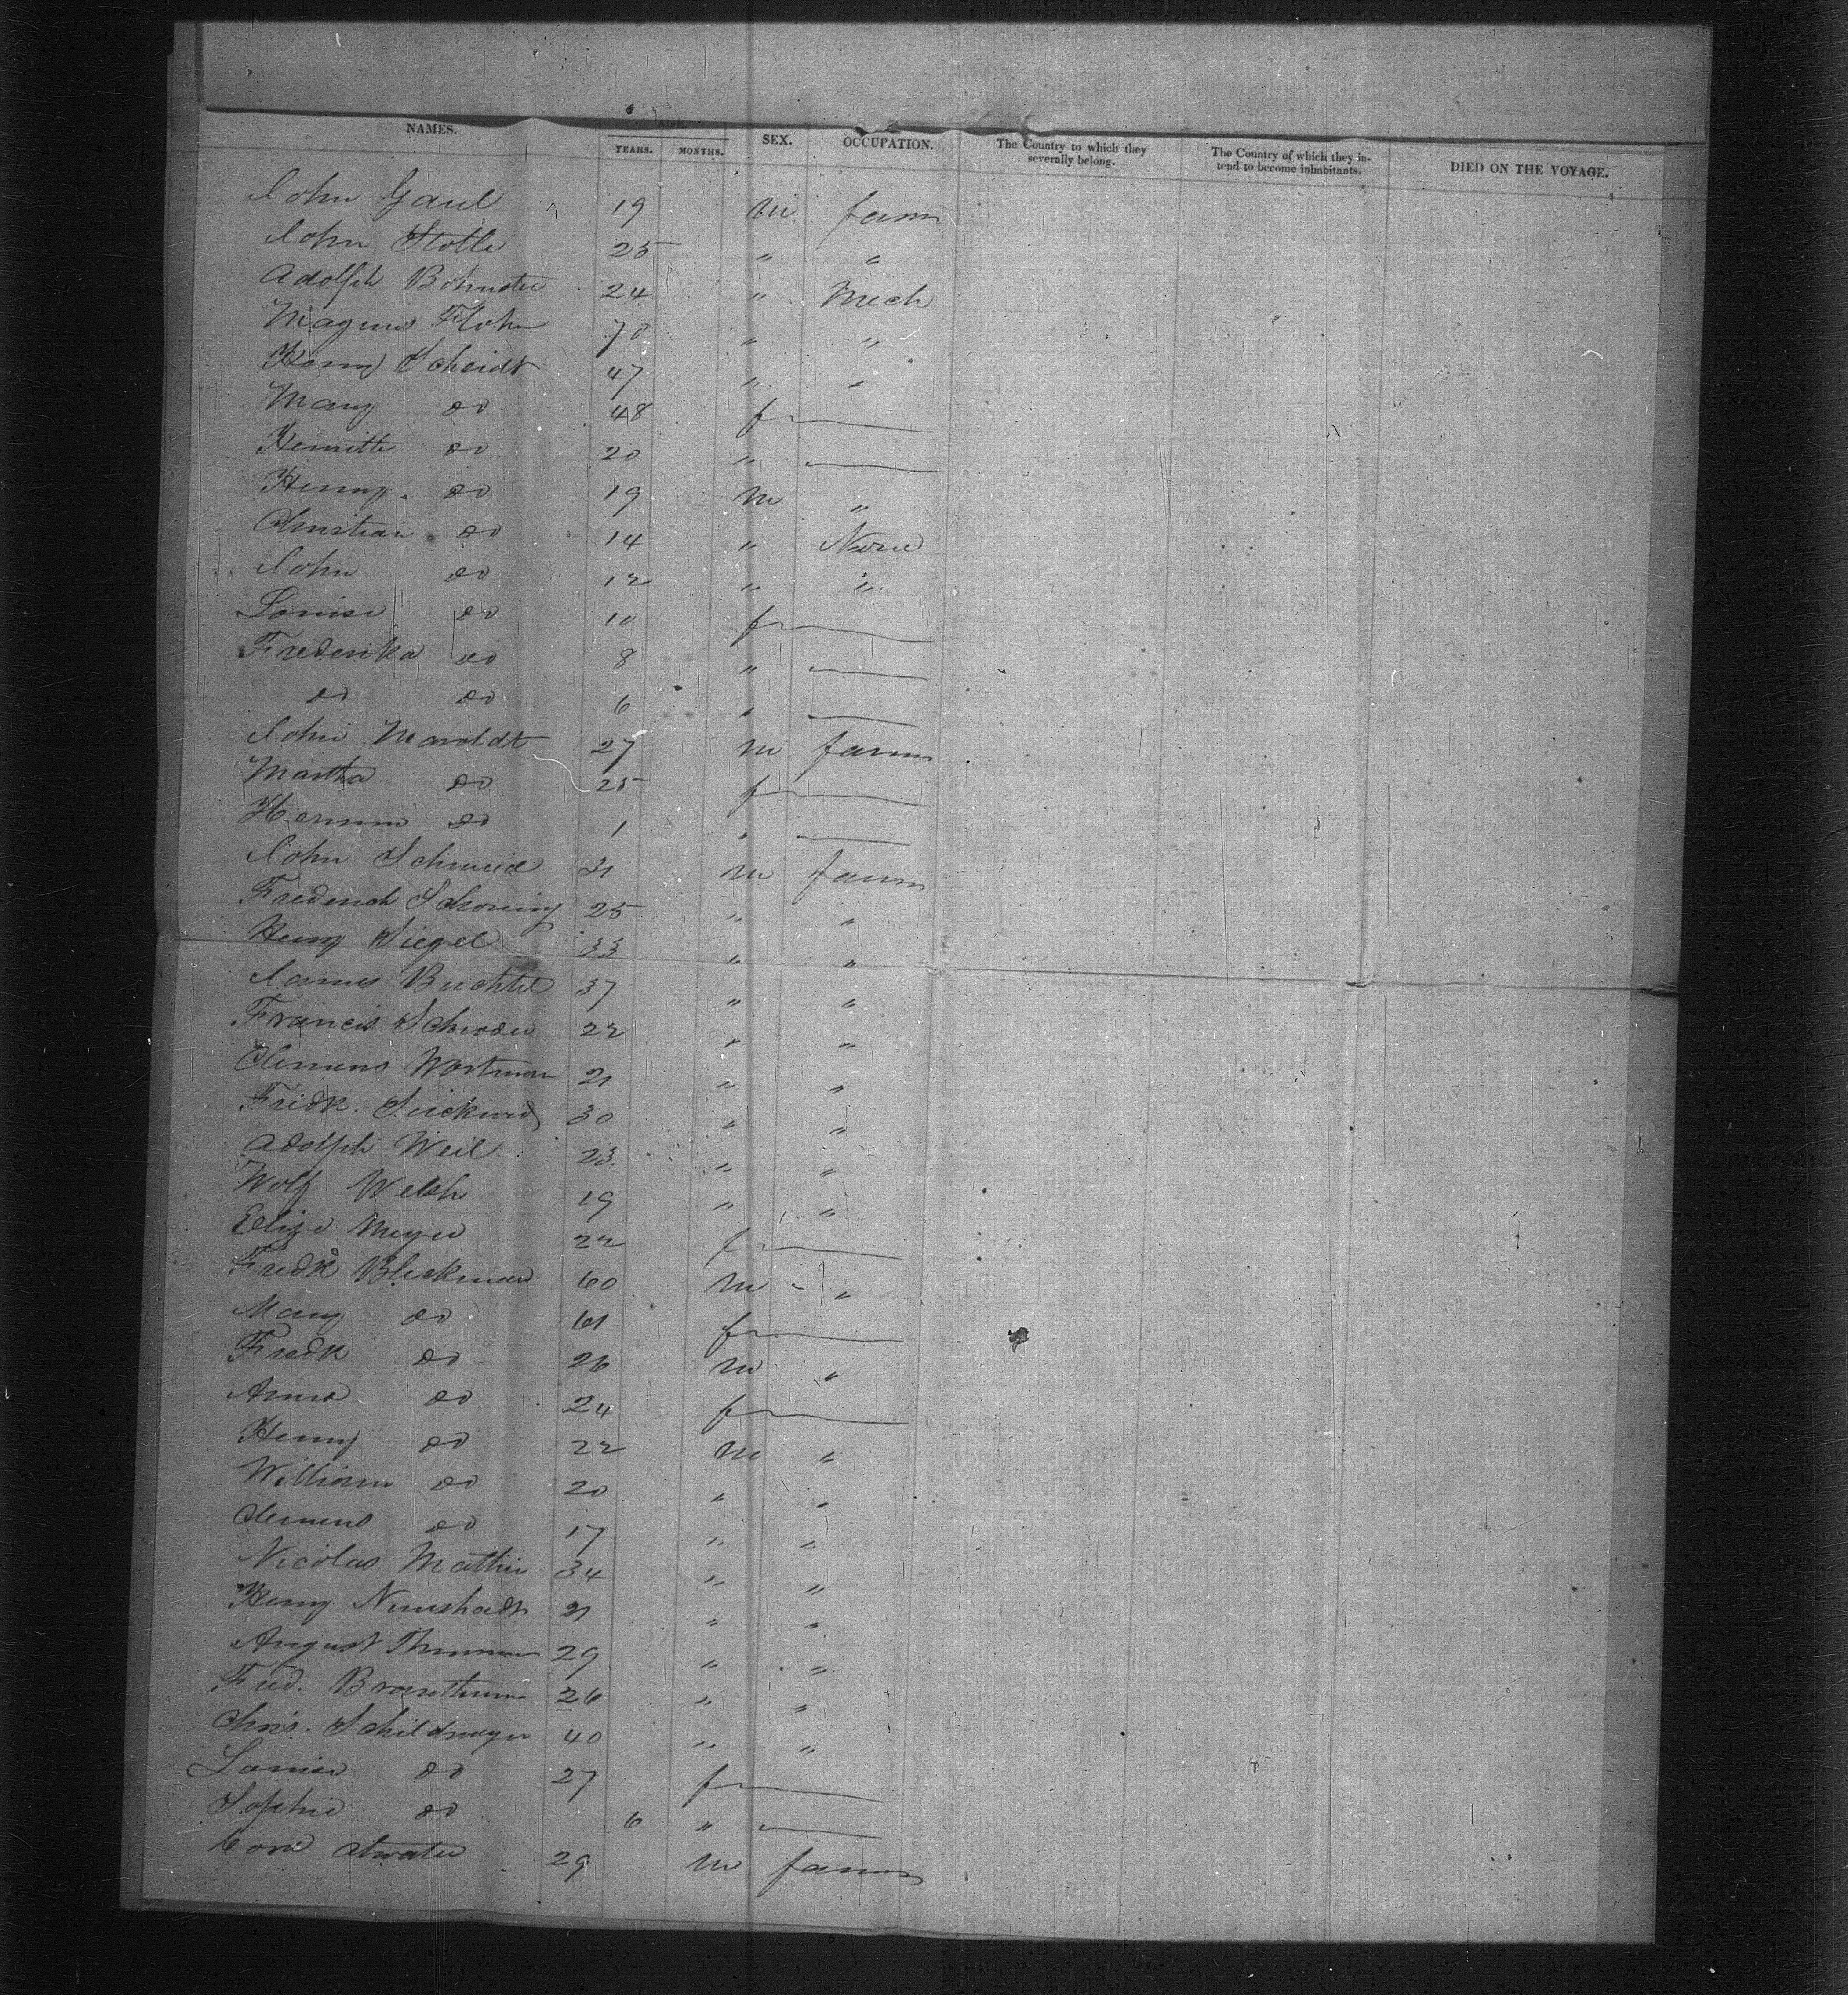 NAMES. AGE. YEARS. MONTHS. SEX. OCCUPATION. The Country to which they severally belong. The Country of which they intend to become inhabitants. DIED ON THE VOYAGE.
John Gaul 19 m farm
John Stolle 25 " "
Adolph 24 " Mech
Magnus Flohr 70 " "
Henry Scheidt 47 " "
Mary do 48 f —
do 20 " —
Henry do 19 m "
Christian do 14 " None
John do 12 " "
Louise do 10 f —
Frederika do 8 " —
do do 6 " —
John Maroldt 27 m farm
Martha do 25 f —
Herman do 1 " —
John Schmeid 31 m farm
Frederich Schoning 25 " "
Henry Siegel 33 " "
James Buchtel 37 " "
Francis Schroder 22 " "
Clemens Wortman 21 " "
Fredk. 30 " "
Adolph Weil 23 " "
Wolf Welsh 19 " "
Eliza Meyer 22 f —
Fredk Bleckman 60 m "
Mary do 61 f —
Fredk do 26 m "
Anna do 24 f —
Henry do 22 m "
William do 20 " "
Clemens do 17 " "
Nicolas Mathie 34 " "
Henry 21 " "
August 29 " "
Fred. 26 " "
Chris. Schildmeyer 40 " "
Louise do 27 f —
Sophie do 6 " —
Atwater 29 m farm